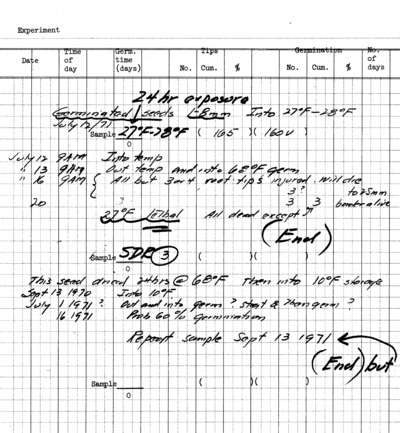 Experiment
Date Time of day Germ. time (days) Tips No. Cum. % Germination No. Cum. % No. of days
24 hr exposure
Germinated seeds 1-8mm Into 27°F-28°F
July 12/71
Sample 27°F-28°F ( 165 )( 160v )
0
July 12 9AM Into temp
" 13 9AM Out temp and into 68°F germ
" 16 9AM { All but 3 or 4 root tips injured. Will die
3? to 25mm
20 ? 3 3 bent & alive
27°F Lethal All dead except
(End)
Sample SDR 3 ( )( )
0
This seed dried 24hrs @ 68°F Then into 10°F storage
Sept 13 1970 Into 10°F
July 1 1971 ? Out and into germ ? start germ ?
16 1971 Prob 60% Germination
Repeat sample Sept 13 1971
(End) but
Sample ( )( )
0